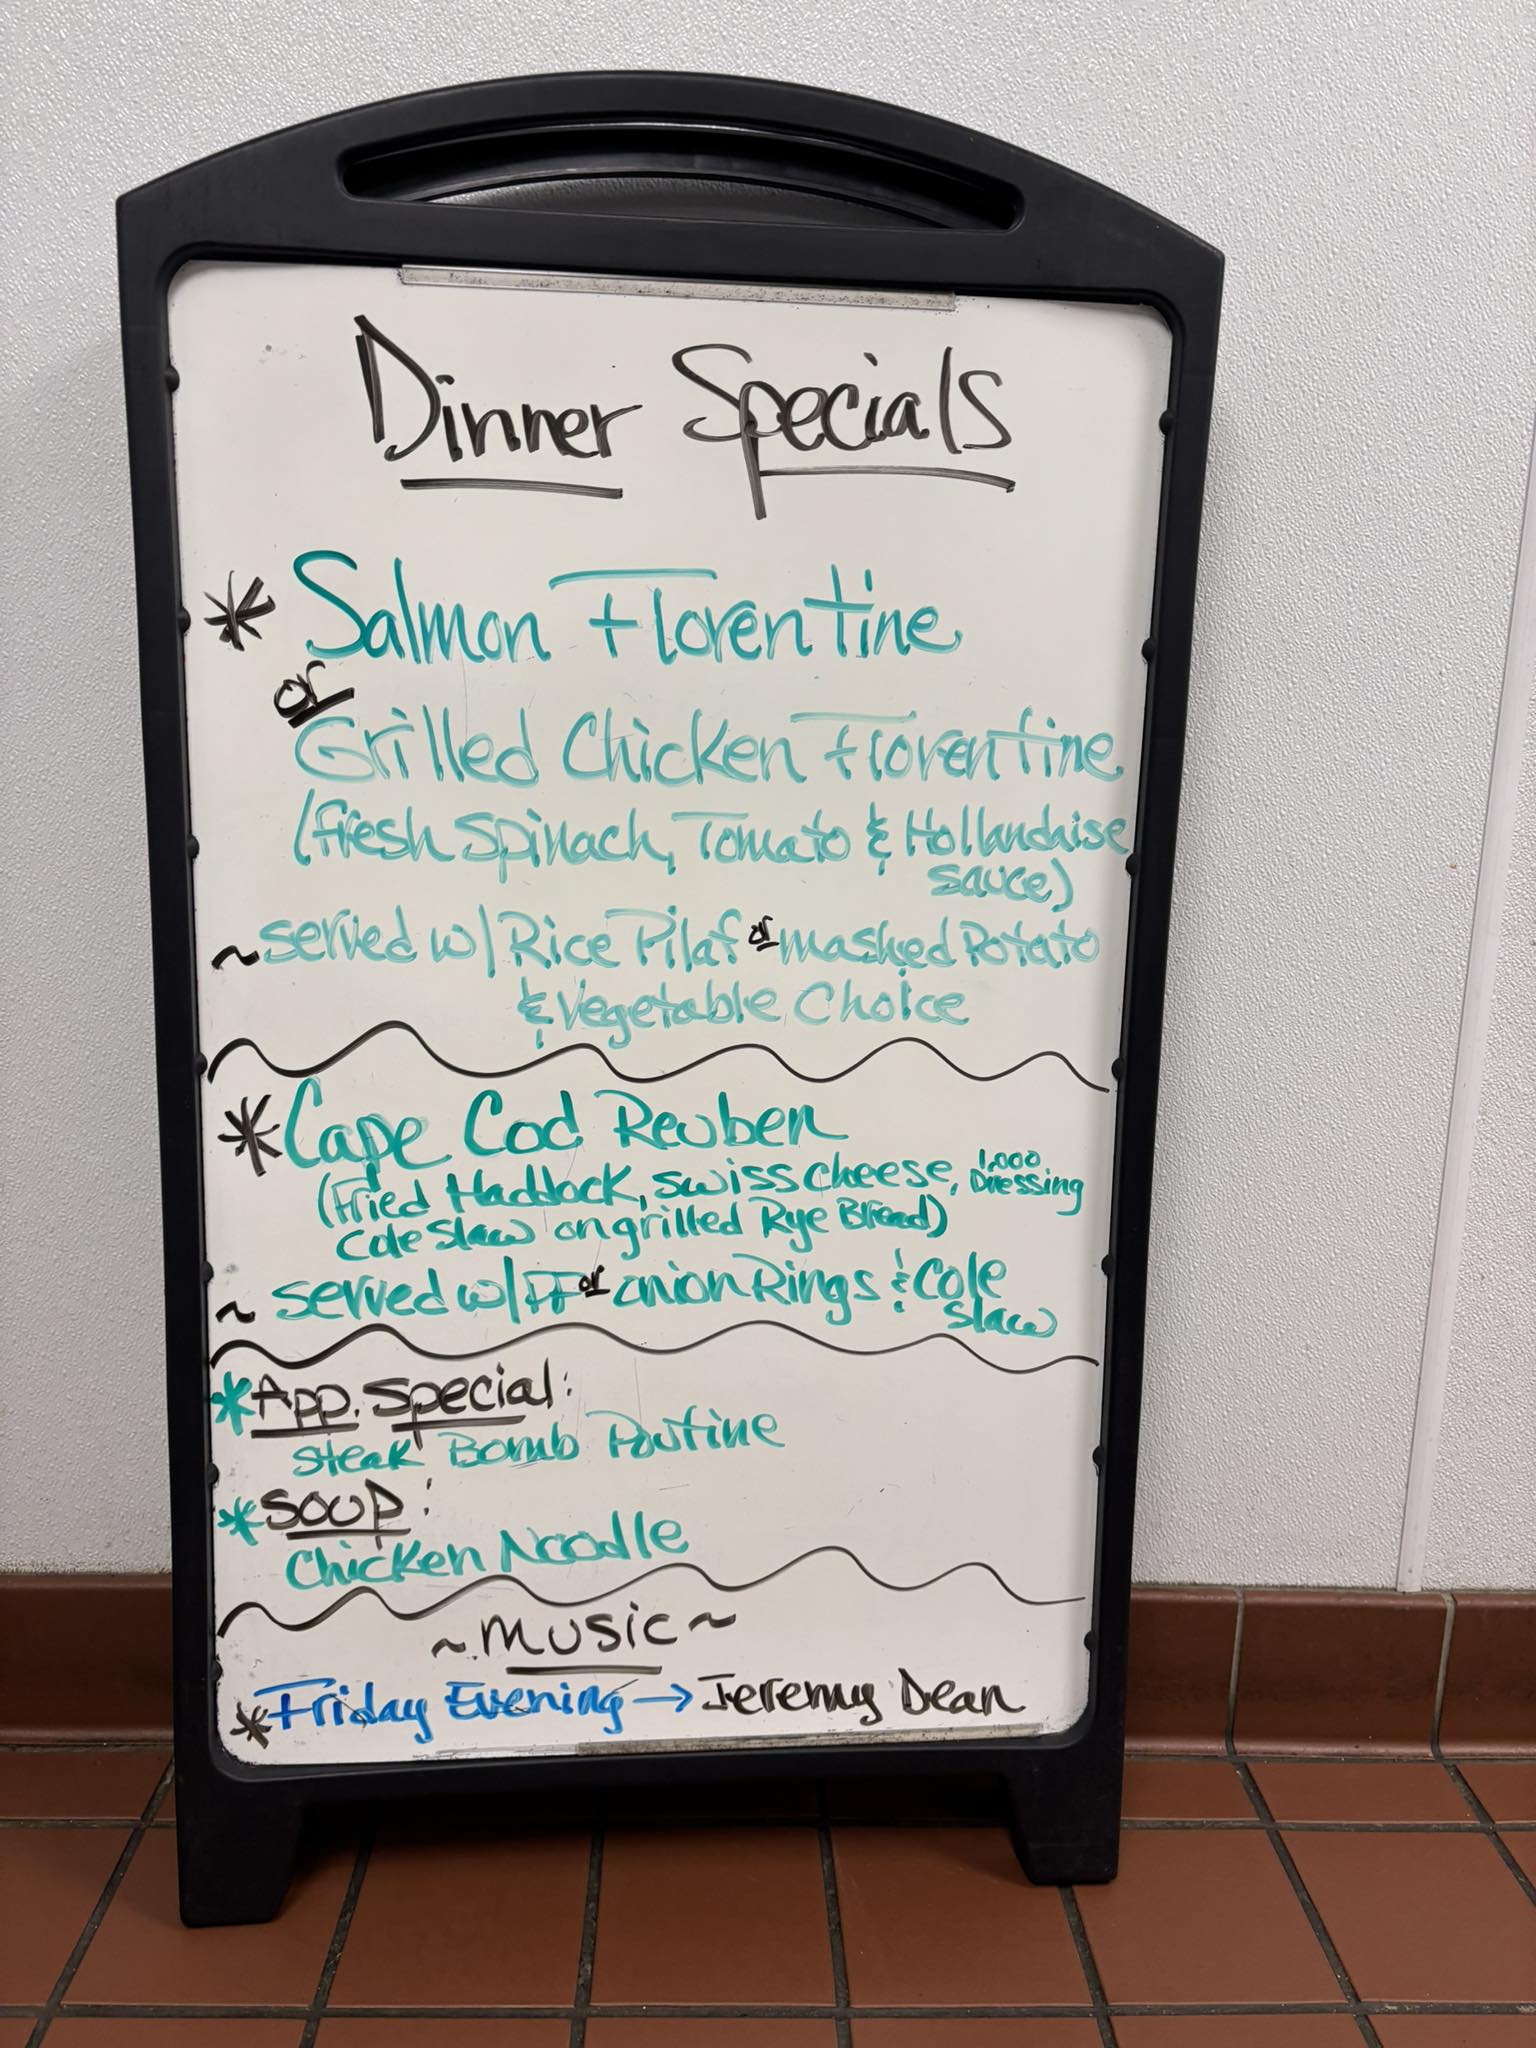 Dinner Specials
* Salmon Florentine
or
Grilled Chicken Florentine
(fresh spinach, Tomato & Hollandaise
sauce)
~ served w/ Rice Pilaf or mashed Potato
& Vegetable Choice
* Cape Cod Reuben
(Fried Haddock, swiss cheese, 1,000 Dressing
Cole Slaw on grilled Rye Bread)
~ served w/ FF or onion Rings & Cole
Slaw
* App. Special:
Steak Bomb Poutine
* Soup:
Chicken Noodle
~ Music ~
* Friday Evening → Jeremy Dean